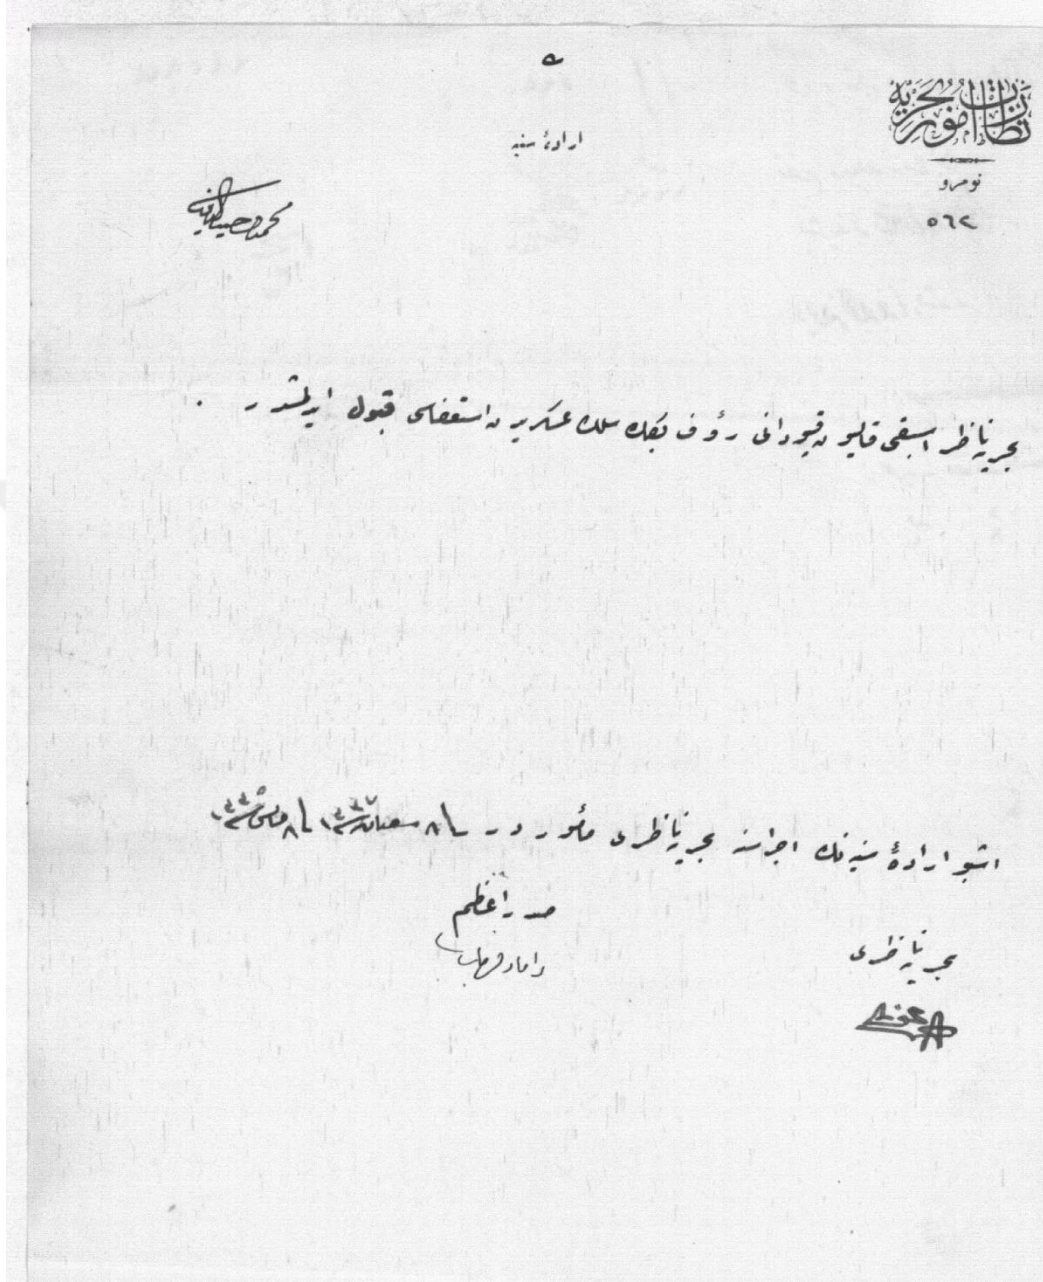 نظارت امور بحریه
نومرو
٥٦٢
ارادهٔ سنیه
محمد وحید الدین
بحریه ناظر اسبقی قالیون قپودانی رؤف بكك سلك عسكریدن استعفاسی قبول ایدلمشدر .
اشبو ارادهٔ سنیه نك اجراسنه بحریه ناظری مأموردر ٨ شعبان ١٣٣٧ ٨ مایس ١٣٣٥
صدر اعظم
داماد فرید
بحریه ناظری
عونی